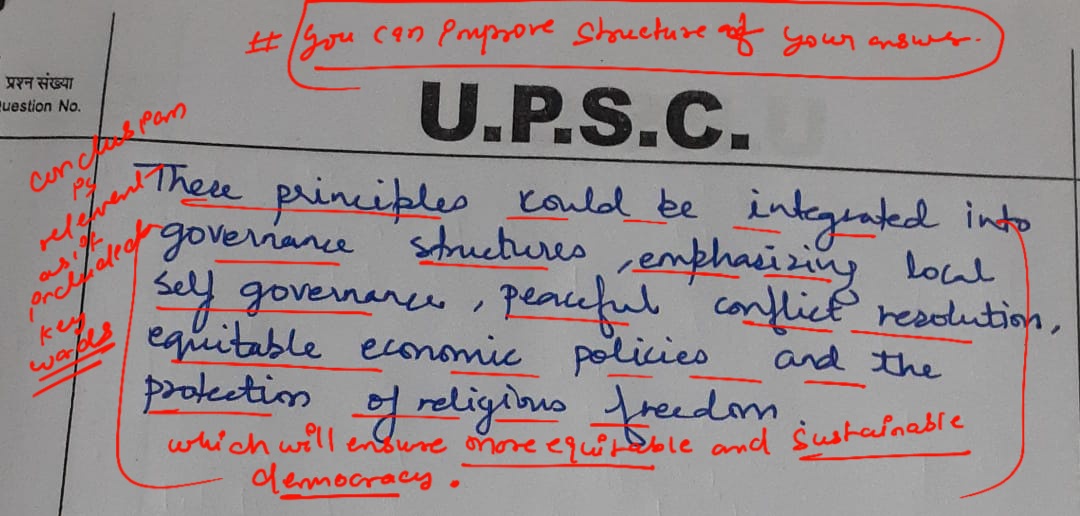 # you can improve structure of your answer.
प्रश्न संख्या
uestion No.
U.P.S.C.
conclusion
is
relevent
as it
included
key
words
These principles could be integrated into
governance structures, emphasizing local
self governance, peaceful conflict resolution,
equitable economic policies and the
protection of religious freedom
which will ensure more equitable and sustainable
democracy.